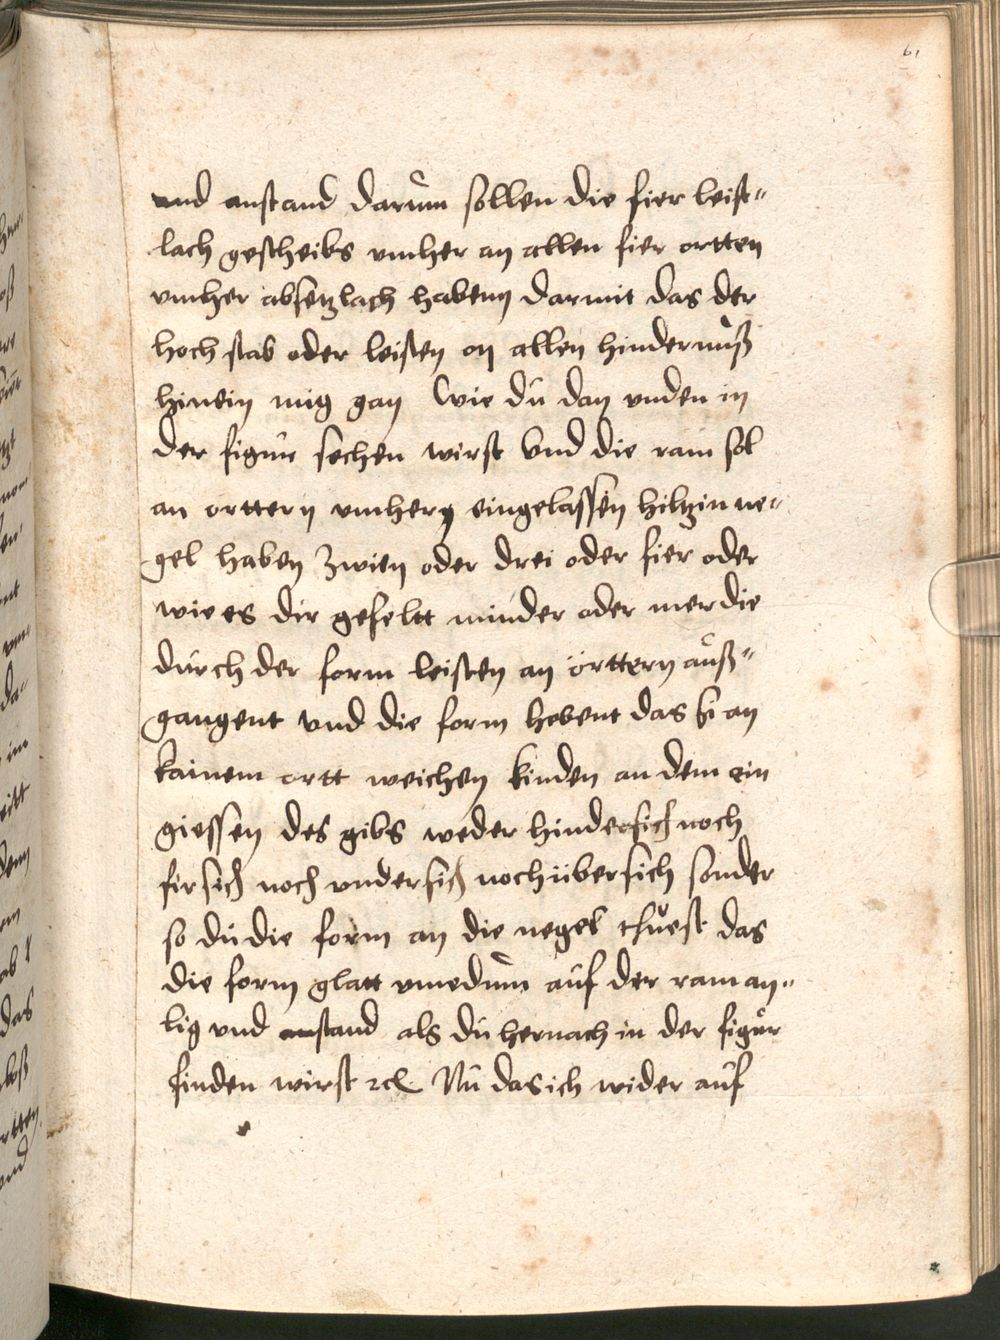 61
und anstand darum sollen die fier leist=
lach gescheibs umher an allen fier ortten
umher absetzlach habenn darmit das der
hoch stab oder leisten on allen hindernuß
hinein mig gan Wie du dan unden in
der figur sechen wirst Vnd die ram sol
an orttern umher eingelassen hiltzin ne=
gel haben Zwien oder drei oder fier oder
wie es dir gefeltt minder oder mer die
durch der form leisten an örttern auß=
gangent vnd die form hebent das si an
kainem ortt weichen kinden an dem ein
giessen des gibs weder hindersich noch
firsich noch undersich noch übersich sonder
so du die form an die negel thuest das
die form glatt umedum auf der ram an=
lig und anstand als du hernach in der figur
finden wirst etc Nu das ich wider auf